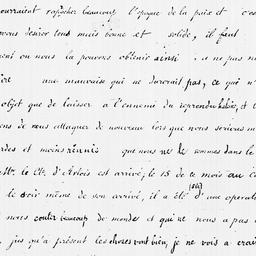 pourraient raprocher beaucoup l'epoque de la paix et c'es
devons désirer tous mais bonne et solide, il faut
ent ou nous la pouvons obtenir ainsi : a ne pas n
une mauvaise qui ne durerait pas, ce qui n'
objet que de laisser à l'ennemi du reprendre haleine, et
ens de nous attaquer de nouveau lors que nous serions m
rdés et moins réunis que nous ne le sommes dans le
Mr. le Cte. d'Artois est arrivé, le 15 de ce mois au ca
le soir même de son arrivé, il a été d'une operati
nous couter beaucoup de monde et qui ne nous a pas
, jus qu'a présent les choses vont bien, je ne vois a crai